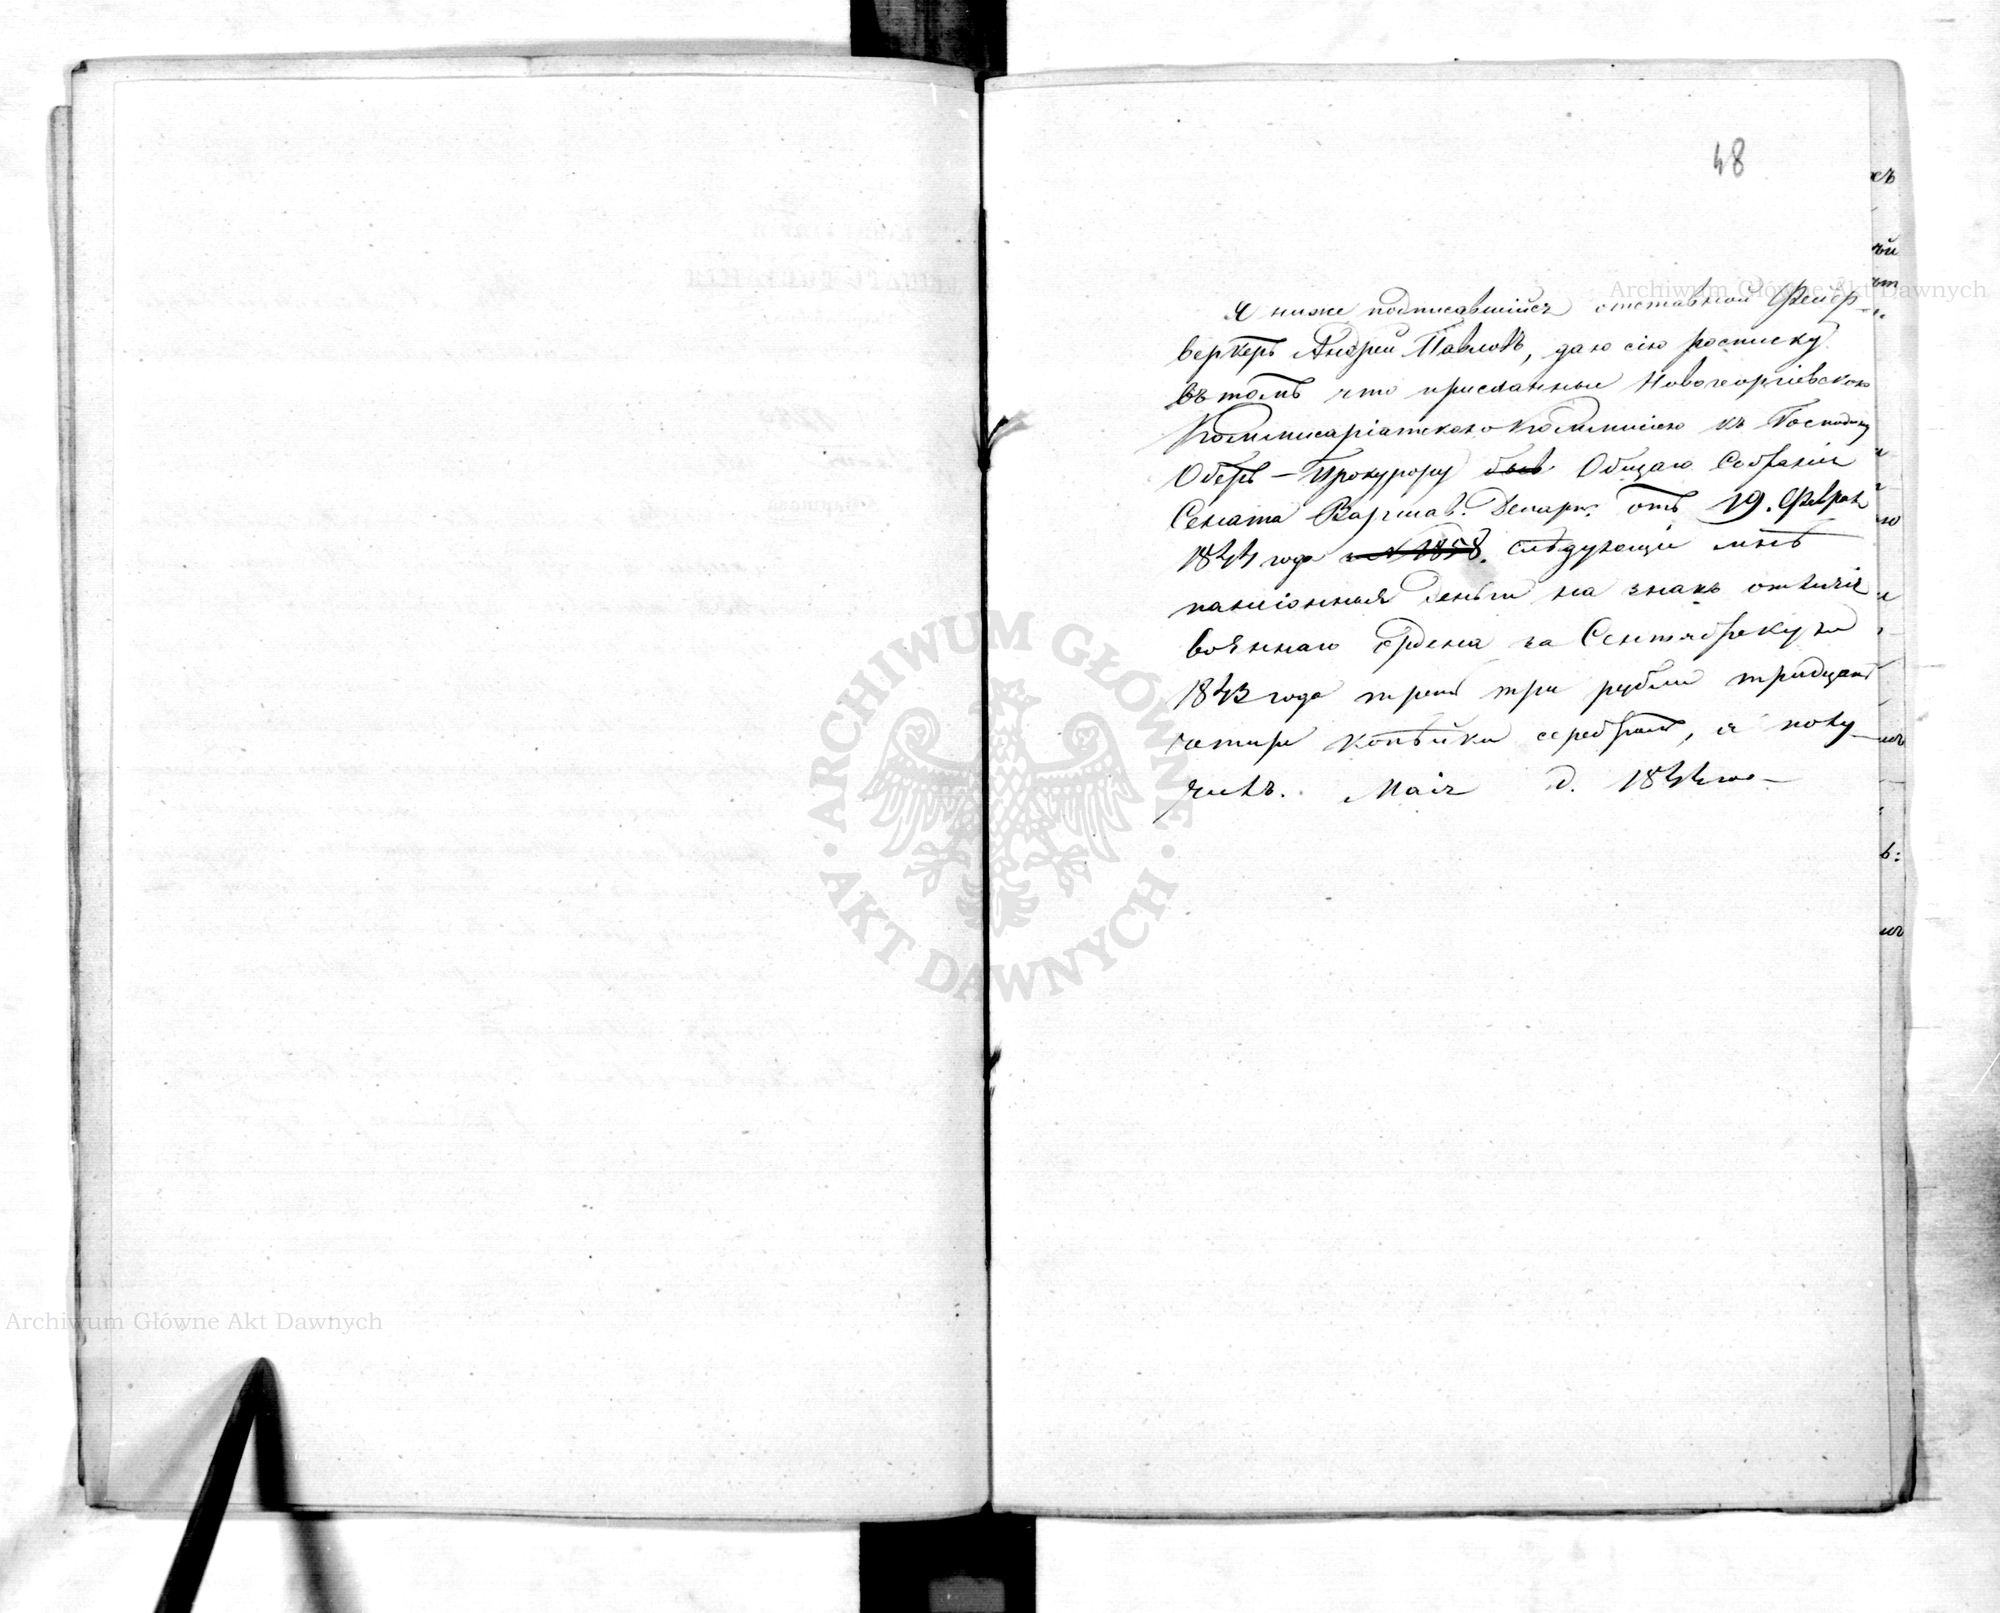 48
Я ниже подписавшійся отставной Фейер-
веркеръ Андрей Павловъ, даю сію росписку
въ томъ что присланныя Новогеоргіевскою
Коммисаріатскою Коммисіею къ Господину
Оберъ-Прокурору Общаго Собранія
Сената Варшав. Департ. отъ 19. Феврал
1844 года № 1858. следующіе мнѣ
пансіонныя деньги на знакъ отличія
военнаго Ордена за Сентябрскую
1843 года треть три рубли тридцать
четыре копѣйки серебромъ, я полу-
чилъ. Маія д. 1844 го-
Archiwum Główne Akt Dawnych
Archiwum Główne Akt Dawnych
ARCHIWUM GŁÓWNE
AKT DAWNYCH